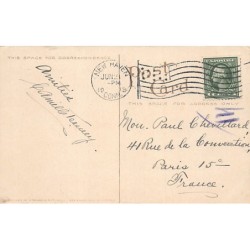 THIS SPACE FOR CORRESPONDENCE
Post
Card
NEW HAVEN
JUN
CONN.
THIS SPACE FOR ADDRESS ONLY
Amitiés
Mon. Paul Chevillard,
41 Rue de la Convention
Paris 15e
France.